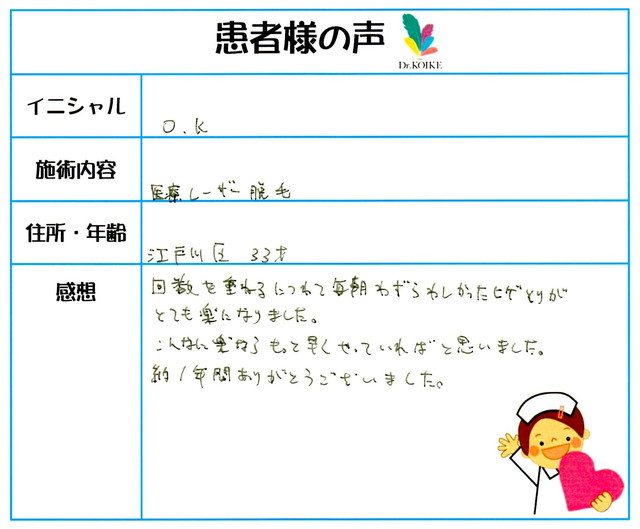 患者様の声
Dr.KOIKE
イニシャル
O.K
施術内容
医療レーザー脱毛
住所・年齢
江戸川区 33才
感想
回数を重ねるにつれて毎朝わずらわしかったヒゲそりが
とても楽になりました。
こんなに楽ならもっと早くやっていればと思いました。
約1年間ありがとうございました。